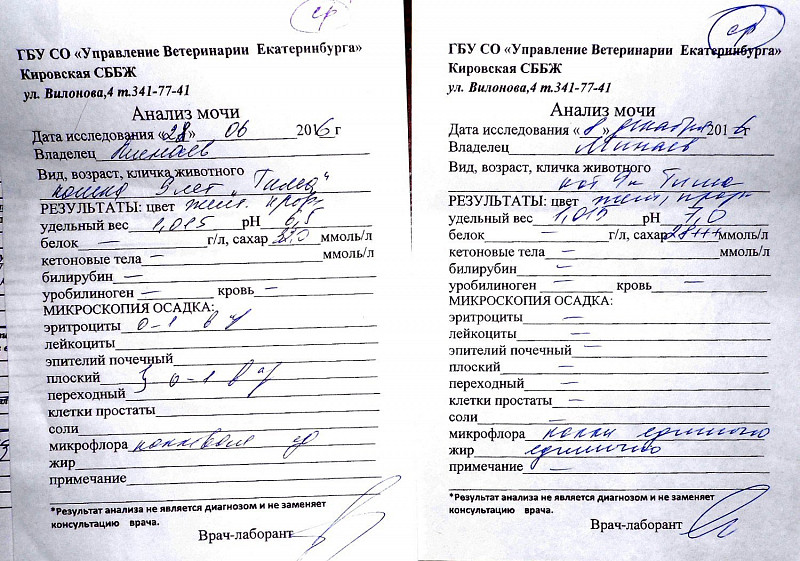 ср
ГБУ СО «Управление Ветеринарии Екатеринбурга»
Кировская СББЖ
ул. Вилонова,4 т.341-77-41
Анализ мочи
Дата исследования «28» 06 2016 г
Владелец
Вид, возраст, кличка животного
кошка 9 лет "Тима"
РЕЗУЛЬТАТЫ: цвет желт. прозр
удельный вес 1,015 pH 6,5
белок — г/л, сахар ммоль/л
кетоновые тела — ммоль/л
билирубин —
уробилиноген — кровь —
МИКРОСКОПИЯ ОСАДКА:
эритроциты 0-1 в
лейкоциты
эпителий почечный
плоский } 0-1 в
переходный
клетки простаты
соли
микрофлора кокковая
жир
примечание
*Результат анализа не является диагнозом и не заменяет
консультацию врача.
Врач-лаборант
ср
ГБУ СО «Управление Ветеринарии Екатеринбурга»
Кировская СББЖ
ул. Вилонова,4 т.341-77-41
Анализ мочи
Дата исследования «8 декабря 2016 г
Владелец Минаев
Вид, возраст, кличка животного
кот 9л Тима
РЕЗУЛЬТАТЫ: цвет желт, прозр
удельный вес 1,015 pH 7,0
белок — г/л, сахар 28+++ ммоль/л
кетоновые тела — ммоль/л
билирубин —
уробилиноген — кровь —
МИКРОСКОПИЯ ОСАДКА:
эритроциты —
лейкоциты —
эпителий почечный —
плоский —
переходный —
клетки простаты —
соли —
микрофлора кокки единично
жир единично
примечание —
*Результат анализа не является диагнозом и не заменяет
консультацию врача.
Врач-лаборант